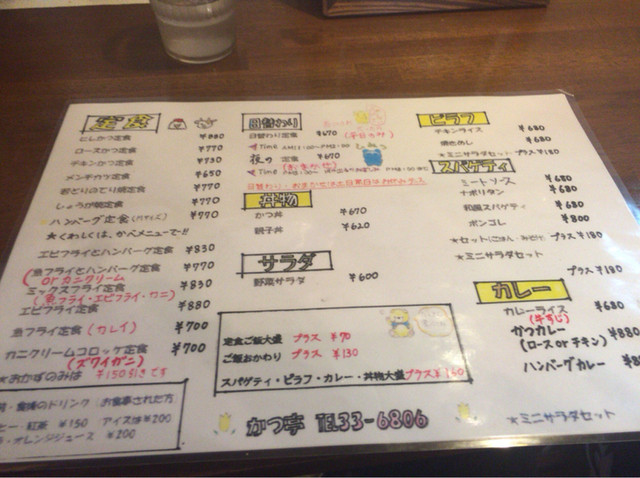 定食
ロースかつ定食 ¥770
チキンかつ定食 ¥730
メンチカツ定食 ¥650
若どりのてり焼定食 ¥770
しょうが焼定食 ¥770
ハンバーグ定食 ¥770
★くわしくは、かべメニューで!!
エビフライとハンバーグ定食 ¥830
魚フライとハンバーグ定食 ¥770
(or カニクリーム)
ミックスフライ定食 ¥830
(魚フライ・エビフライ・カニ)
エビフライ定食 ¥880
魚フライ定食 (カレイ) ¥700
カニクリームコロッケ定食 ¥700
(ズワイガニ)
★おかずのみは ¥150引きです
食後のドリンク (お食事された方
ヒー・紅茶 ¥150 アイスは¥200
オレンジジュース ¥200
日替わり
日替わり定食 ¥670 (平日のみ)
Time AM11:00~PM2:00
夜の定食 ¥670
(おまかせ)
Time
丼物
かつ丼 ¥670
親子丼 ¥620
サラダ
野菜サラダ ¥600
定食ご飯大盛 プラス ¥70
ご飯おかわり プラス ¥130
スパゲティ・ピラフ・カレー・丼物大盛プラス¥160
かつ亭 TEL33-6806
ピラフ
チキンライス ¥680
焼きめし ¥680
★ミニサラダセット プラス¥180
スパゲティ
ミートソース ¥680
ナポリタン ¥680
和風スパゲティ ¥680
ボンゴレ ¥800
★セット(ごはん・みそ汁) プラス¥180
★ミニサラダセット
プラス¥180
カレー
カレーライス ¥680
(牛すじ)
かつカレー ¥880
(ロース or チキン)
ハンバーグカレー
★ミニサラダセット